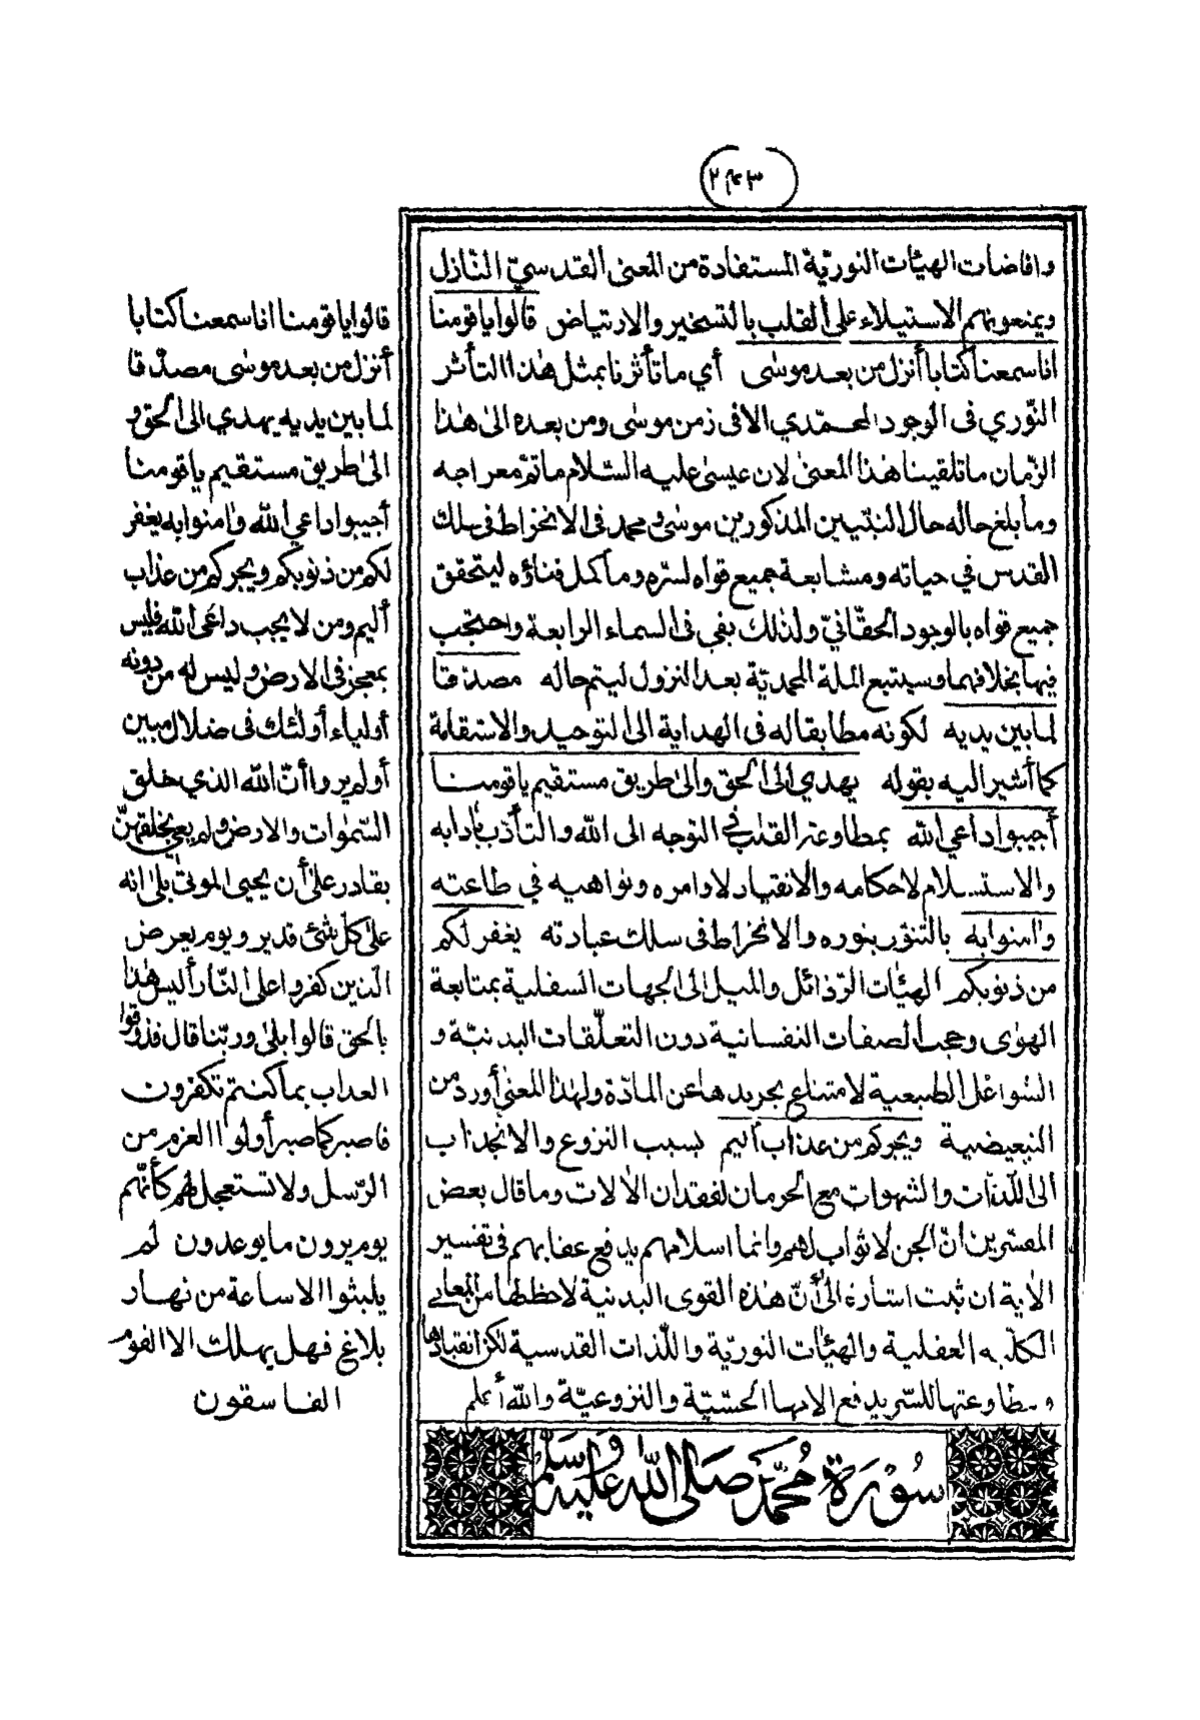 ٢٤٣
وافاضات الهيئات النوريّة المستفادة من المعنى القدسيّ النّازل
ويمنعونهم الاستيلاء على القلب بالتسخير والارتياض قالوا يا قومنا
انا سمعنا كتابا أنزل من بعد موسى أي ما تأثرنا بمثل هذا التأثر
النّوري في الوجود المحمّدي الا في زمن موسى ومن بعده الى هذا
الزّمان ما تلقينا هذا المعنى لان عيسى عليه السّلام ما تمّ معراجه
وما بلغ حاله حال النبّيين المذكورين موسى ومحمد في الانخراط في سلك
القدس في حياته ومشابعة جميع قواه لسرّه وما كمل فناؤه ليتحقق
جميع قواه بالوجود الحقّانيّ ولذلك بقي في السماء الرابعة واحتجب
فيها بخلافهما وسيتبع الملة المحمديّة بعد النزول ليتم حاله مصدّقا
لما بين يديه لكونه مطابقا له في الهداية الى التوحيد والاستقامة
كما أشير اليه بقوله يهدي الى الحق والى طريق مستقيم يا قومنا
أجيبوا داعي الله بمطاوعة القلب في التوجه الى الله والتأدّب بآدابه
والاستسلام لاحكامه والانقياد لاوامره ونواهيه في طاعته
وآمنوا به بالتنوّر بنوره والانخراط في سلك عبادته يغفر لكم
من ذنوبكم الهيئات الرّذائل والميل الى الجهات السفلية بمتابعة
الهوى وحجب الصفات النفسانية دون التعلّقات البدنيّة و
الشواغل الطبيعية لامتناع تجريدها عن المادّة ولهذا المعنى أورد من
التبعيضية ويجركم من عذاب أليم بسبب النزوع والانجذاب
الى اللّذّات والشهوات مع الحرمان لفقدان الآلات وما قال بعض
المفسّرين انّ الجن لا ثواب لهم وانما اسلامهم يدفع عقابهم في تفسير
الآية ان ثبت اشارة الى أنّ هذه القوى البدنية لا حظ لها من المعاني
الكلّيه العقلية والهيئات النوريّة واللّذات القدسية لكن انقيادها
ومطاوعتها للسّر يدفع آلامها الحسّيّة والنزوعيّة والله أعلم
سورة محمّد صلى الله عليه وسلم
قالوا يا قومنا انا سمعنا كتابا
أنزل من بعد موسى مصدّقا
لما بين يديه يهدي الى الحق و
الى طريق مستقيم يا قومنا
أجيبوا داعي الله وآمنوا به يغفر
لكم من ذنوبكم ويجركم من عذاب
أليم ومن لا يجب داعى الله فليس
بمعجز في الارض وليس له من دونه
أولياء أولئك في ضلال مبين
أولم يروا أنّ الله الذي خلق
السّموات والارض ولم يعي بخلقهنّ
بقادر على أن يحيى الموتى بلى انه
على كل شئ قدير ويوم يعرض
الّذين كفروا على النّار أليس هذا
بالحق قالوا بلى وربّنا قال فذوقوا
العذاب بما كنتم تكفرون
فاصبر كما صبر أولوا العزم من
الرّسل ولا تستعجل لهم كأنّهم
يوم يرون ما يوعدون لم
يلبثوا الا ساعة من نهار
بلاغ فهل يهلك الا القوم
الفاسقون